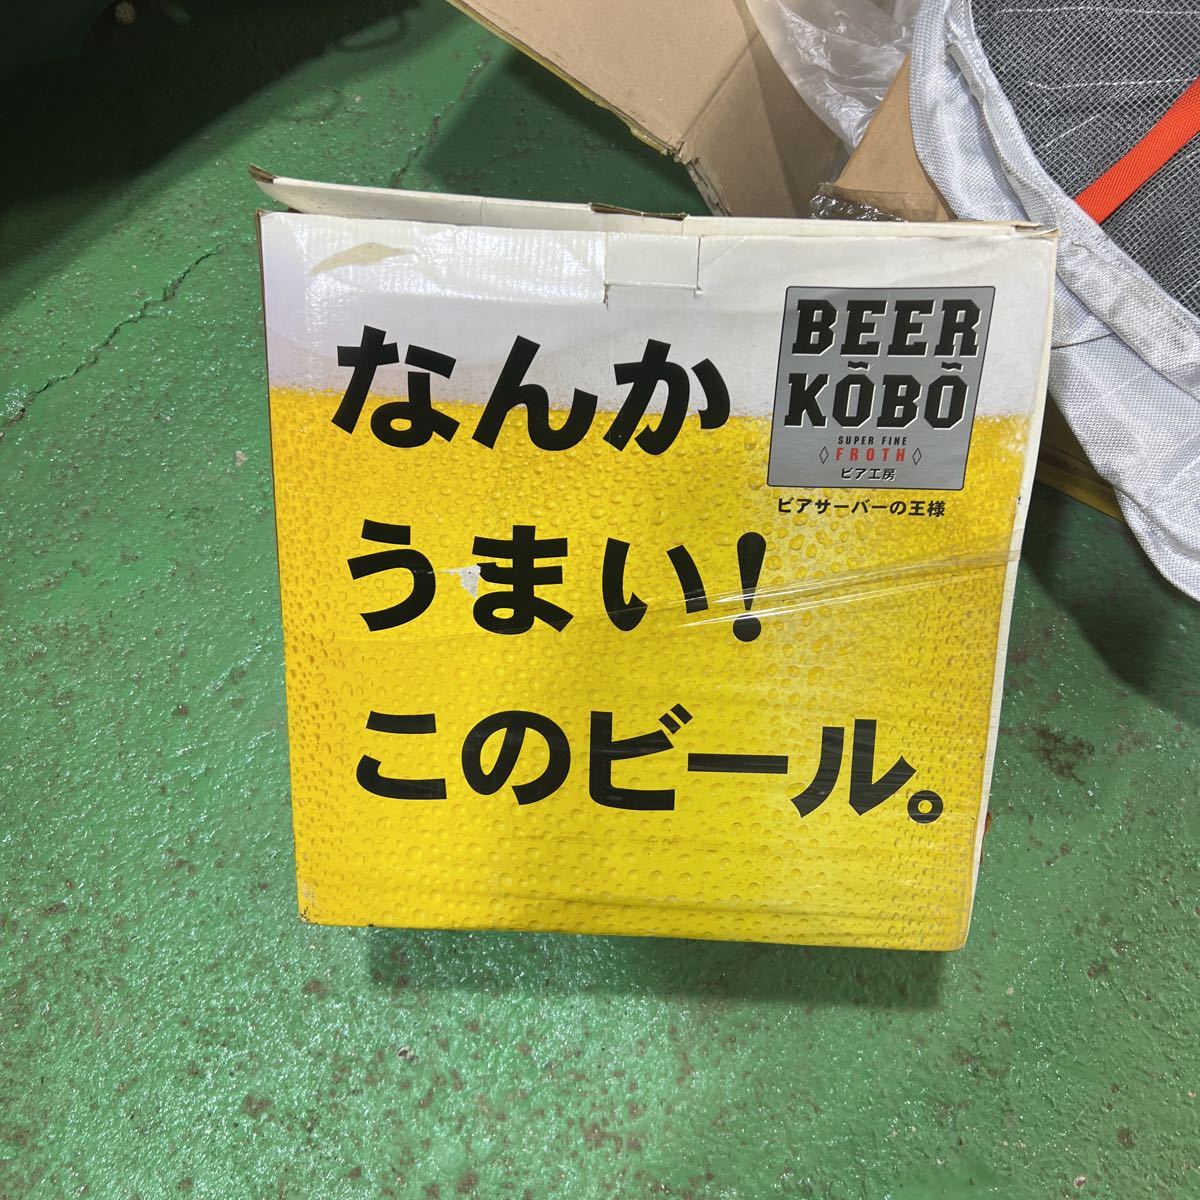 なんか
うまい!
このビール。
BEER
KÕBÕ
SUPER FINE
◇FROTH◇
ビア工房
ビアサーバーの王様